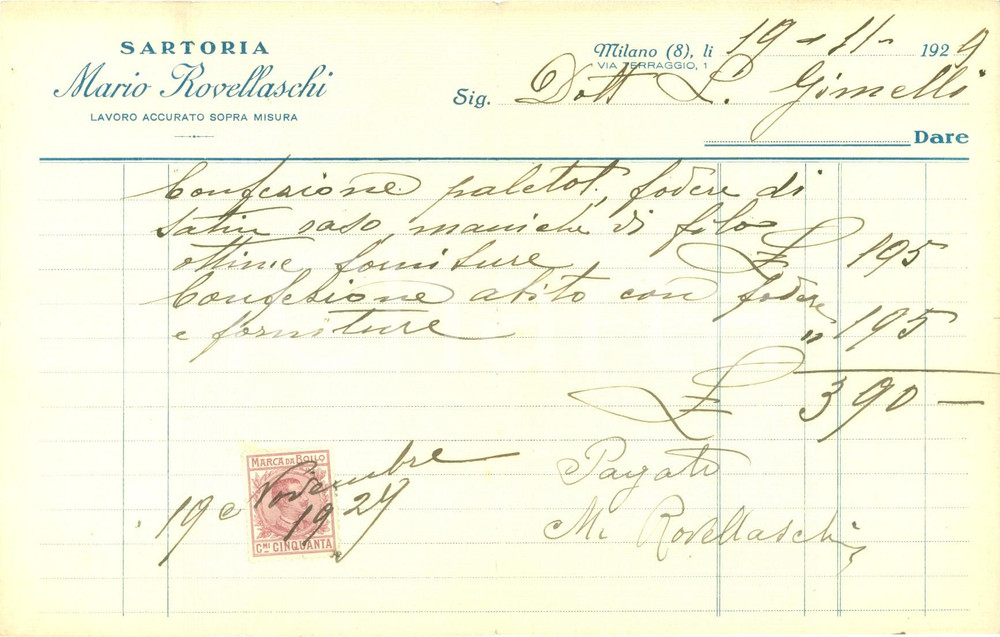 SARTORIA
Mario Rovellaschi
LAVORO ACCURATO SOPRA MISURA
Milano (8), li 19-11- 1929
VIA TERRAGGIO, 1
Sig. Dott L. Gimelli
Dare
Confezione paletot, fodere di
satin raso, maniche di filo
ottime forniture £ 195
Confezione abito con fodere
e forniture " 195
£ 390 —
MARCA DA BOLLO
19 Novembre
1929
CMI CINQUANTA
Pagato
M. Rovellaschi